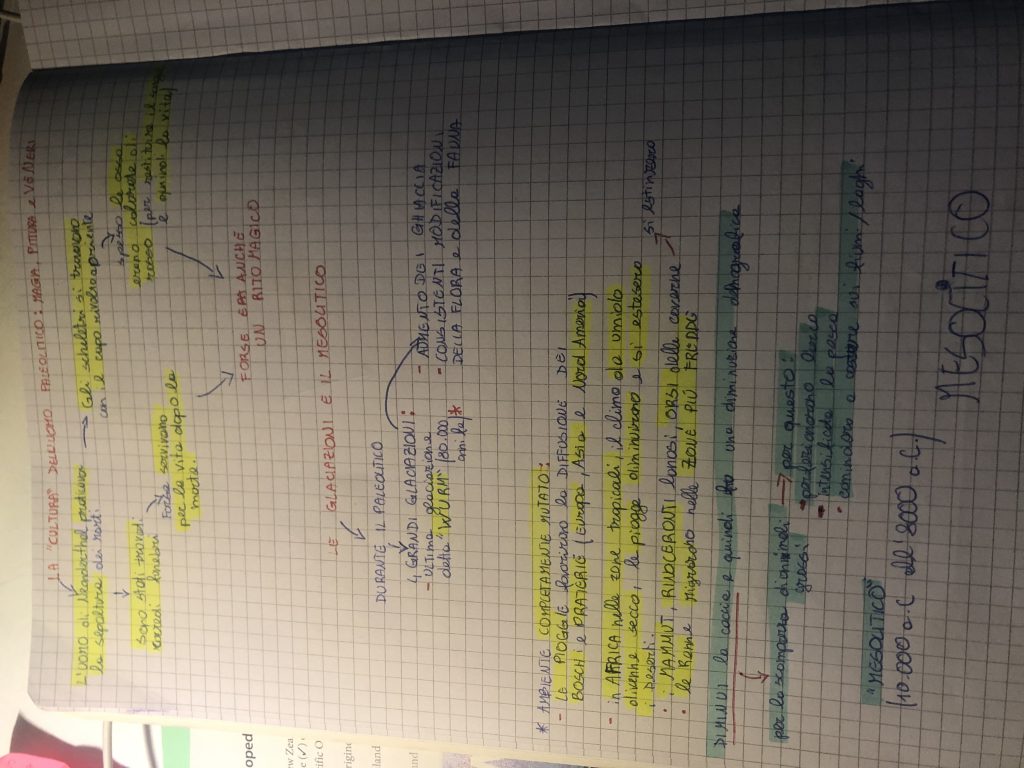 LA "CULTURA" DELL'UOMO PALEOLITICO: MAGIA, PITTURA e VENERI
L'uomo di Neanderthal praticava
la sepoltura dei morti.
Gli scheletri si trovavano
con il capo
spesso le ossa
erano colorate di
rosso (per restituire il
e quindi la vita)
Sono stati trovati
corredi funebri
Forse servivano
per la vita dopo la
morte.
FORSE ERA ANCHE
UN RITO MAGICO
LE GLACIAZIONI E IL MESOLITICO
DURANTE IL PALEOLITICO
4 GRANDI GLACIAZIONI:
- Ultima glaciazione
detta "WÜRM" (80.000
anni fa)*
- AUMENTO DEI GHIACCIA
- CONSISTENTI MODIFICAZIONI
DELLA FLORA e della FAUNA
* AMBIENTE COMPLETAMENTE MUTATO:
- LE PIOGGE favorirono la DIFFUSIONE DEI
BOSCHI e PRATERIE (Europa, Asia e Nord America)
- in AFRICA nelle zone tropicali il clima da umido
divenne secco, le piogge diminuirono e si estesero
i deserti.
• MAMMUT, RINOCERONTI lanosi, ORSI delle caverne
si estinsero
• le Renne migrarono nelle ZONE PIÙ FREDDE
DIMINUÌ la caccia e quindi una diminuzione demografica
per la scomparsa di animali
grossi.
per questo:
• perfezionarono l'arco
• intensificò la pesca
• cominciano a vivere sui fiumi/laghi.
"MESOLITICO"
(10.000 a.C all'8000 a.C.)
MESOLITICO
oped
ew Zea
e (✓)
cific O
origine
land
und